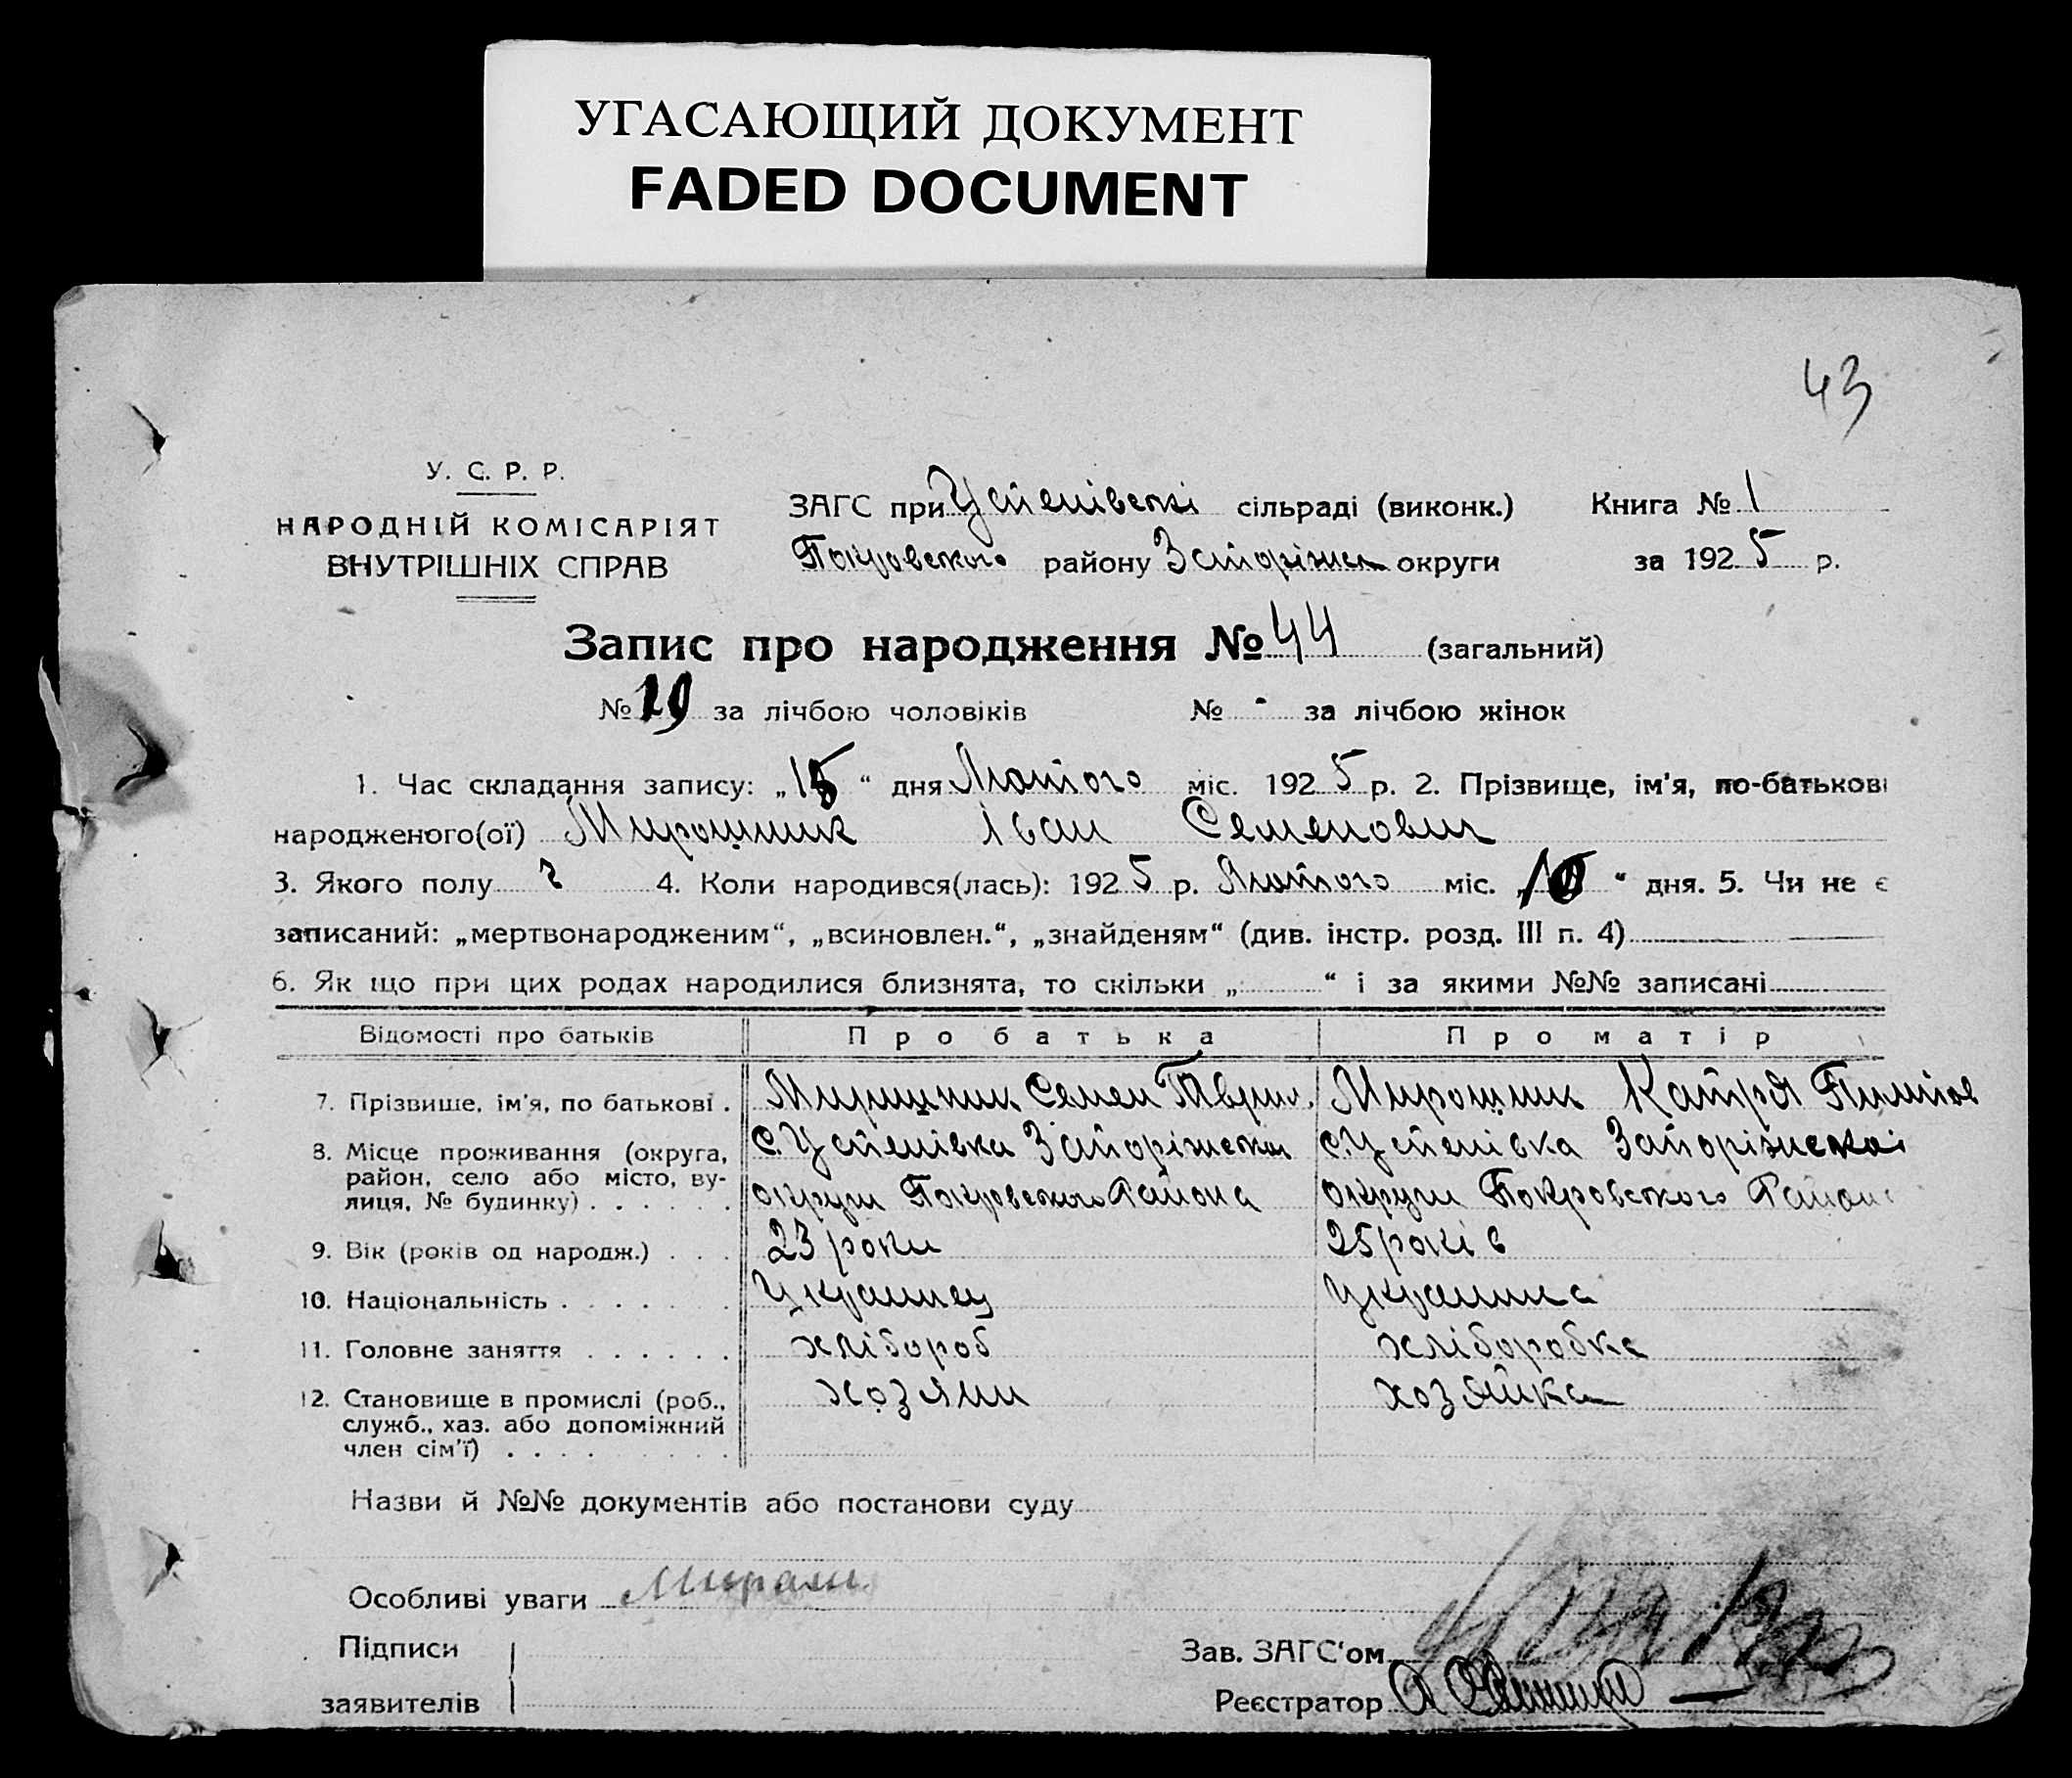 УГАСАЮЩИЙ ДОКУМЕНТ
FADED DOCUMENT
43
У. С. Р. Р.
НАРОДНІЙ КОМІСАРІЯТ
ВНУТРІШНІХ СПРАВ
ЗАГС при Успенівскі сільраді (виконк.) Книга № 1
Покровского району Запоріжск округи за 1925 р.
Запис про народження № 44 (загальний)
№ 29 за лічбою чоловіків № - за лічбою жінок
1. Час складання запису: „15“ дня Лютого міс. 1925 р. 2. Прізвище, ім'я, по-батькові
народженого(ої) Мирошник Іван Семенович
3. Якого полу ч 4. Коли народився(лась): 1925 р. Лютого міс. „10“ дня. 5. Чи не є
записаний: „мертвонародженим“, „всиновлен.“, „знайденям“ (див. інстр. розд. III п. 4)
6. Як що при цих родах народилися близнята, то скільки „ “ і за якими №№ записані
Відомості про батьків Про батька Про матір
7. Прізвище, ім'я, по батькові . Мирошник Семен Мирошник Катря
8. Місце проживання (округа, район, село або місто, вулиця, № будинку) . . . . . .
с. Успенівка Запоріжскои округи Покровского Района
с. Успенівка Запоріжскоі округи Покровского Района
9. Вік (років од народж.) . . . 23 роки 25 років
10. Національність . . . . . . Украинец Украинка
11. Головне заняття . . . . . . хлібороб хліборобка
12. Становище в промислі (роб., служб., хаз. або допоміжний член сім'ї) . . . . . . хозяин хозяйка
Назви й №№ документів або постанови суду
Особливі уваги
Підписи
заявителів
Зав. ЗАГС‘ом
Реєстратор